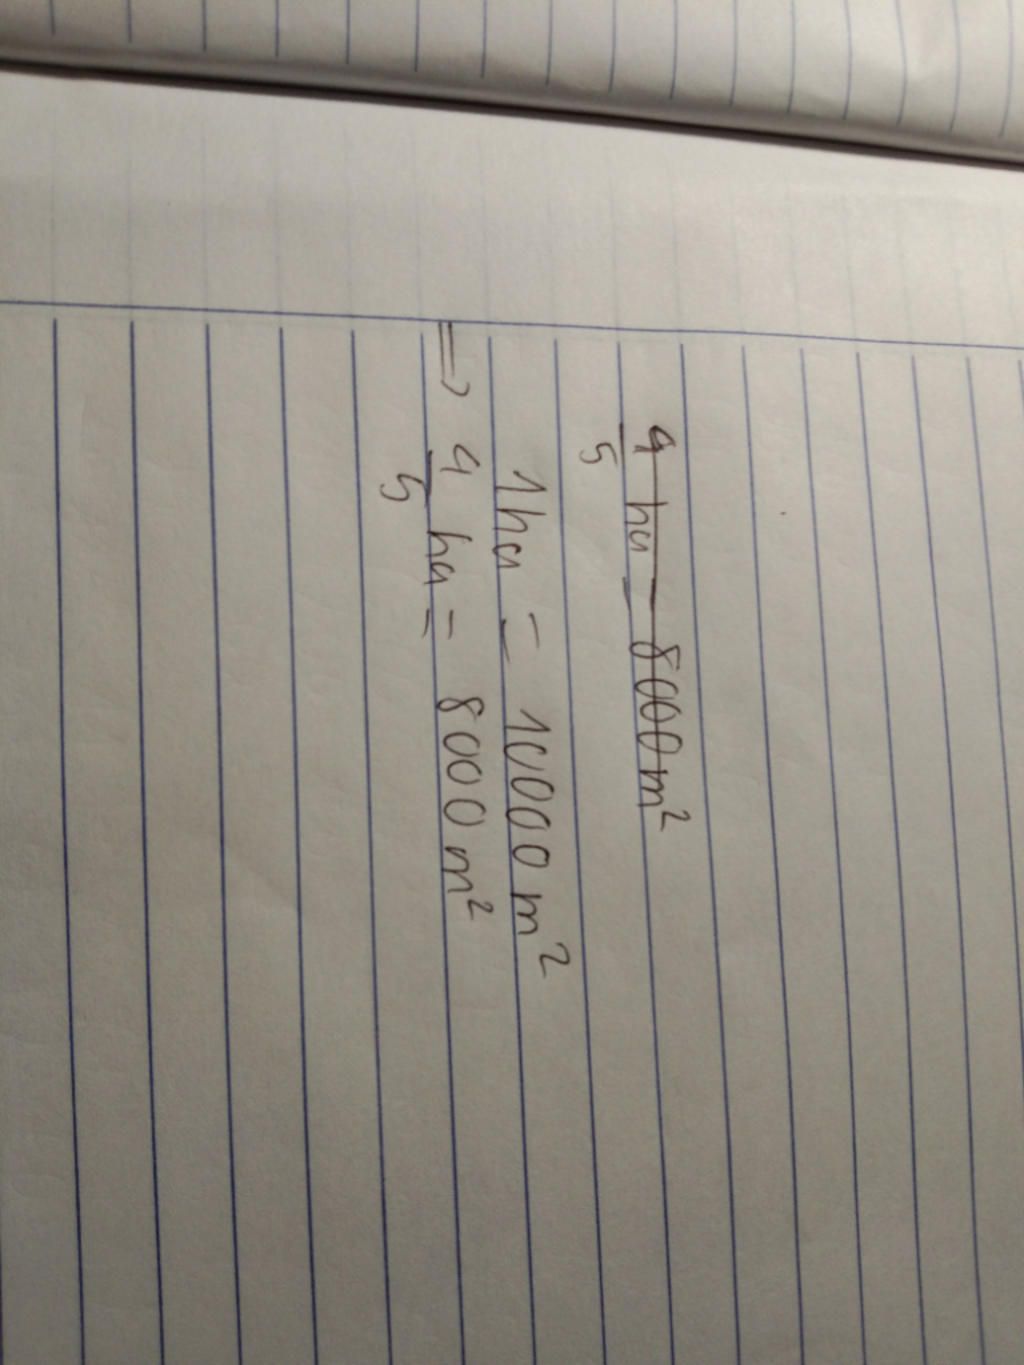 4/5 ha = 8000m²
1ha = 10000 m²
=> 4/5 ha = 8000 m²